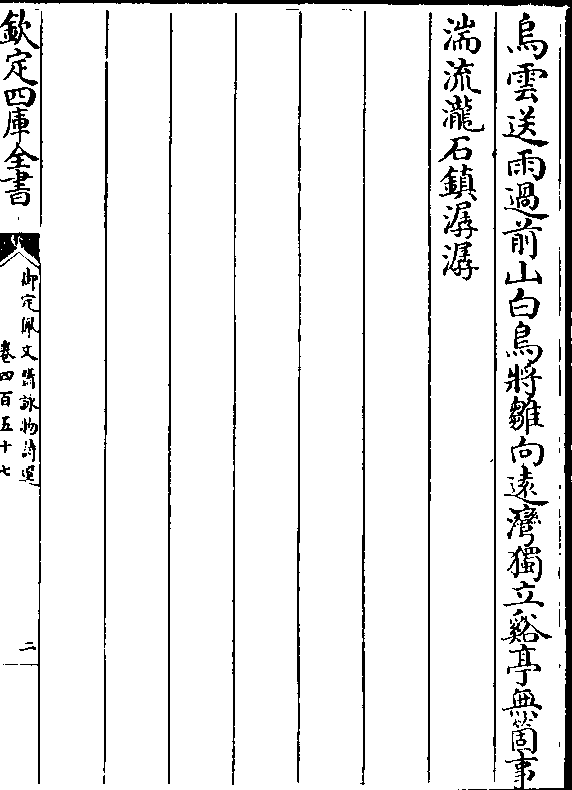 烏雲送雨過前山白鳥將雛向遠灣獨立谿亭無箇事
湍流瀧石鎮潺潺
欽定四庫全書
御定佩文齋詠物詩選
卷四百五十七
二